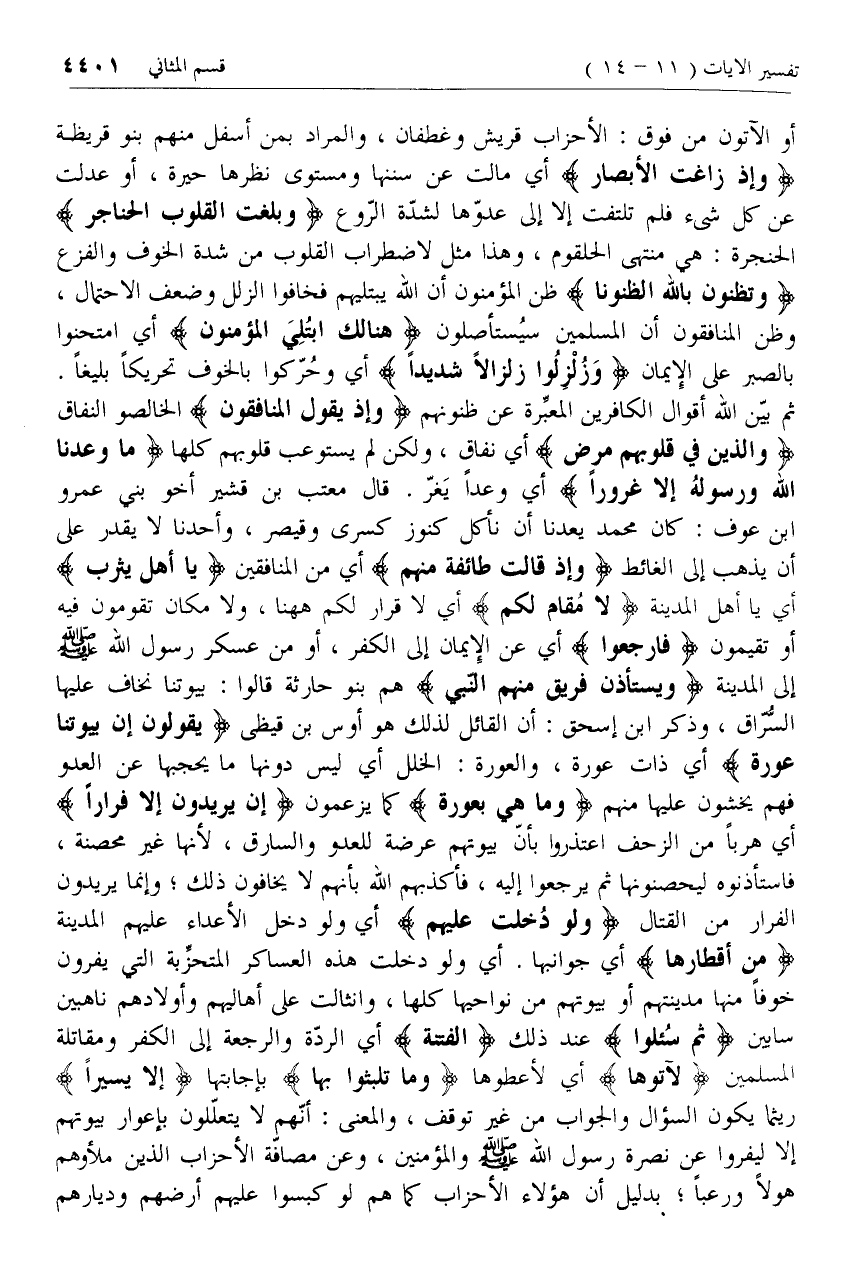 تفسير الايات ( ١١ - ١٤ ) قسم المثاني ٤٤٠١
أو الآتون من فوق : الأحزاب قريش وغطفان ، والمراد بمن أسفل منهم بنو قريظة
﴿ وإذ زاغت الأبصار ﴾ أي مالت عن سننها ومستوى نظرها حيرة ، أو عدلت
عن كل شىء فلم تلتفت إلا إلى عدوّها لشدّة الرّوع ﴿ وبلغت القلوب الحناجر ﴾
الحنجرة : هي منتهى الحلقوم ، وهذا مثل لاضطراب القلوب من شدة الخوف والفزع
﴿ وتظنون بالله الظنونا ﴾ ظن المؤمنون أن الله يبتليهم فخافوا الزلل وضعف الاحتمال ،
وظن المنافقون أن المسلمين سيُستأصلون ﴿ هنالك ابتُلِيَ المؤمنون ﴾ أي امتحنوا
بالصبر على الإيمان ﴿ وَزُلْزِلُوا زلزالاً شديداً ﴾ أي وحُرّكوا بالخوف تحريكاً بليغاً .
ثم بيّن الله أقوال الكافرين المعبِّرة عن ظنونهم ﴿ وإذ يقول المنافقون ﴾ الخالصو النفاق
﴿ والذين في قلوبهم مرض ﴾ أي نفاق ، ولكن لم يستوعب قلوبهم كلها ﴿ ما وعدنا
الله ورسولهُ إلا غروراً ﴾ أي وعداً يَغرّ . قال معتب بن قشير أخو بني عمرو
ابن عوف : كان محمد يعدنا أن نأكل كنوز كسرى وقيصر ، وأحدنا لا يقدر على
أن يذهب إلى الغائط ﴿ وإذ قالت طائفة منهم ﴾ أي من المنافقين ﴿ يا أهل يثرب ﴾
أي يا أهل المدينة ﴿ لا مُقام لكم ﴾ أي لا قرار لكم ههنا ، ولا مكان تقومون فيه
أو تقيمون ﴿ فارجعوا ﴾ أي عن الإيمان إلى الكفر ، أو من عسكر رسول الله ﷺ
إلى المدينة ﴿ ويستأذن فريق منهم النّبي ﴾ هم بنو حارثة قالوا : بيوتنا نخاف عليها
السُّرّاق ، وذكر ابن إسحق : أن القائل لذلك هو أوس بن قيظى ﴿ يقولون إن بيوتنا
عورة ﴾ أي ذات عورة ، والعورة : الخلل أي ليس دونها ما يحجبها عن العدو
فهم يخشون عليها منهم ﴿ وما هي بعورة ﴾ كما يزعمون ﴿ إن يريدون إلا فراراً ﴾
أي هرباً من الزحف اعتذروا بأنّ بيوتهم عرضة للعدو والسارق ، لأنها غير محصنة ،
فاستأذنوه ليحصنونها ثم يرجعوا إليه ، فأكذبهم الله بأنهم لا يخافون ذلك ؛ وإنما يريدون
الفرار من القتال ﴿ ولو دُخلت عليهم ﴾ أي ولو دخل الأعداء عليهم المدينة
﴿ من أقطارها ﴾ أي جوانبها . أي ولو دخلت هذه العساكر المتحزّبة التي يفرون
خوفاً منها مدينتهم أو بيوتهم من نواحيها كلها ، وانثالت على أهاليهم وأولادهم ناهبين
سابين ﴿ ثم سُئلوا ﴾ عند ذلك ﴿ الفتنة ﴾ أي الردّة والرجعة إلى الكفر ومقاتلة
المسلمين ﴿ لآتوها ﴾ أي لأعطوها ﴿ وما تلبثوا بها ﴾ بإجابتها ﴿ إلا يسيراً ﴾
ريثما يكون السؤال والجواب من غير توقف ، والمعنى : أنّهم لا يتعلّلون بإعوار بيوتهم
إلا ليفروا عن نصرة رسول الله ﷺ والمؤمنين ، وعن مصافّة الأحزاب الذين ملأوهم
هولاً ورعباً ؛ بدليل أن هؤلاء الأحزاب كما هم لو كبسوا عليهم أرضهم وديارهم